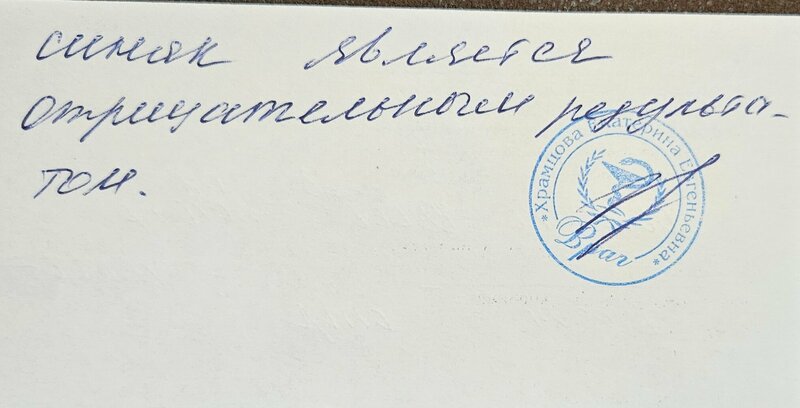 синяк является
отрицательным результа-
том.
*Храмцова Екатерина Евгеньевна*
Врач